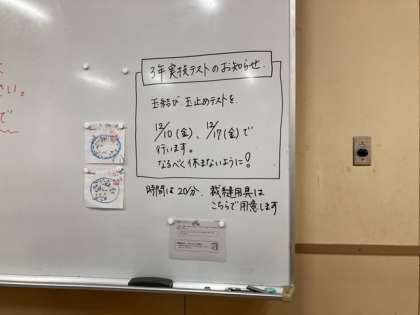 3年実技テストのお知らせ.
玉結び 玉止めテストを
12/10(金)、12/17(金)で
行います。
なるべく休まないように!
時間は20分、裁縫用具は
こちらで用意します